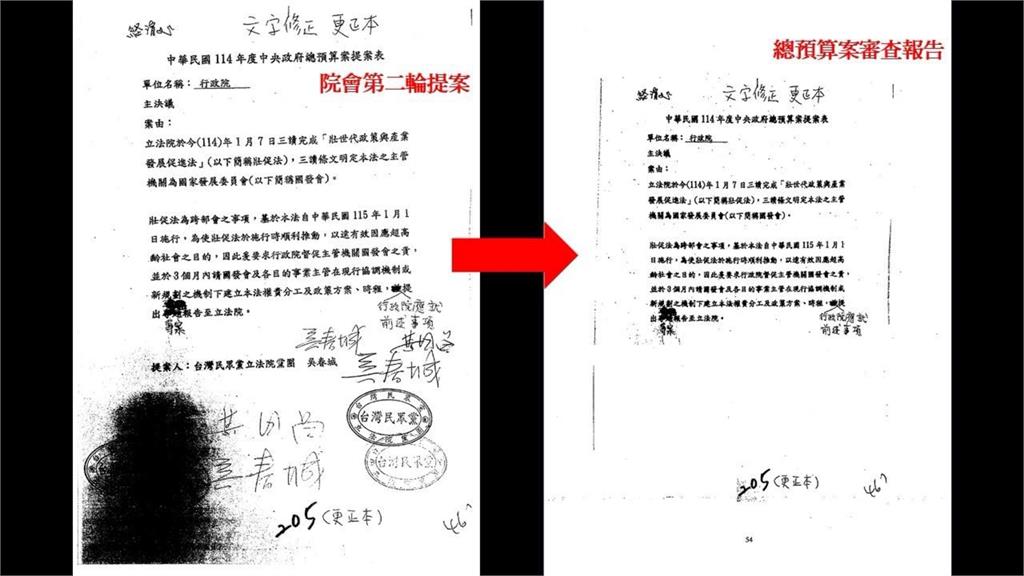 文字修正 更正本
中華民國 114 年度中央政府總預算案提案表
院會第二輪提案
單位名稱：行政院
主決議
案由：
立法院於今(114)年 1 月 7 日三讀完成「壯世代政策與產業
發展促進法」(以下簡稱壯促法)，三讀條文明定本法之主管
機關為國家發展委員會(以下簡稱國發會)。
壯促法為跨部會之事項，基於本法自中華民國 115 年 1 月 1
日施行，為使壯促法於施行時順利推動，以達有效因應超高
齡社會之目的，因此爰要求行政院督促主管機關國發會之責，
並於 3 個月內請國發會及各目的事業主管在現行協調機制或
新規劃之機制下建立本法權責分工及政策方案、時程，提
行政院應就
前述事項
出專案報告至立法院。
吳春城
提案人：台灣民眾黨立法院黨團 吳春城
吳春城
台灣民眾黨
吳春城
台灣民眾黨
205(更正本)
467
總預算案審查報告
文字修正 更正本
中華民國 114 年度中央政府總預算案提案表
單位名稱：行政院
主決議
案由：
立法院於今(114)年 1 月 7 日三讀完成「壯世代政策與產業
發展促進法」(以下簡稱壯促法)，三讀條文明定本法之主管
機關為國家發展委員會(以下簡稱國發會)。
壯促法為跨部會之事項，基於本法自中華民國 115 年 1 月 1
日施行，為使壯促法於施行時順利推動，以達有效因應超高
齡社會之目的，因此爰要求行政院督促主管機關國發會之責，
並於 3 個月內請國發會及各目的事業主管在現行協調機制或
新規劃之機制下建立本法權責分工及政策方案、時程，提
行政院應就
前述事項
出專案報告至立法院。
205(更正本)
467
54